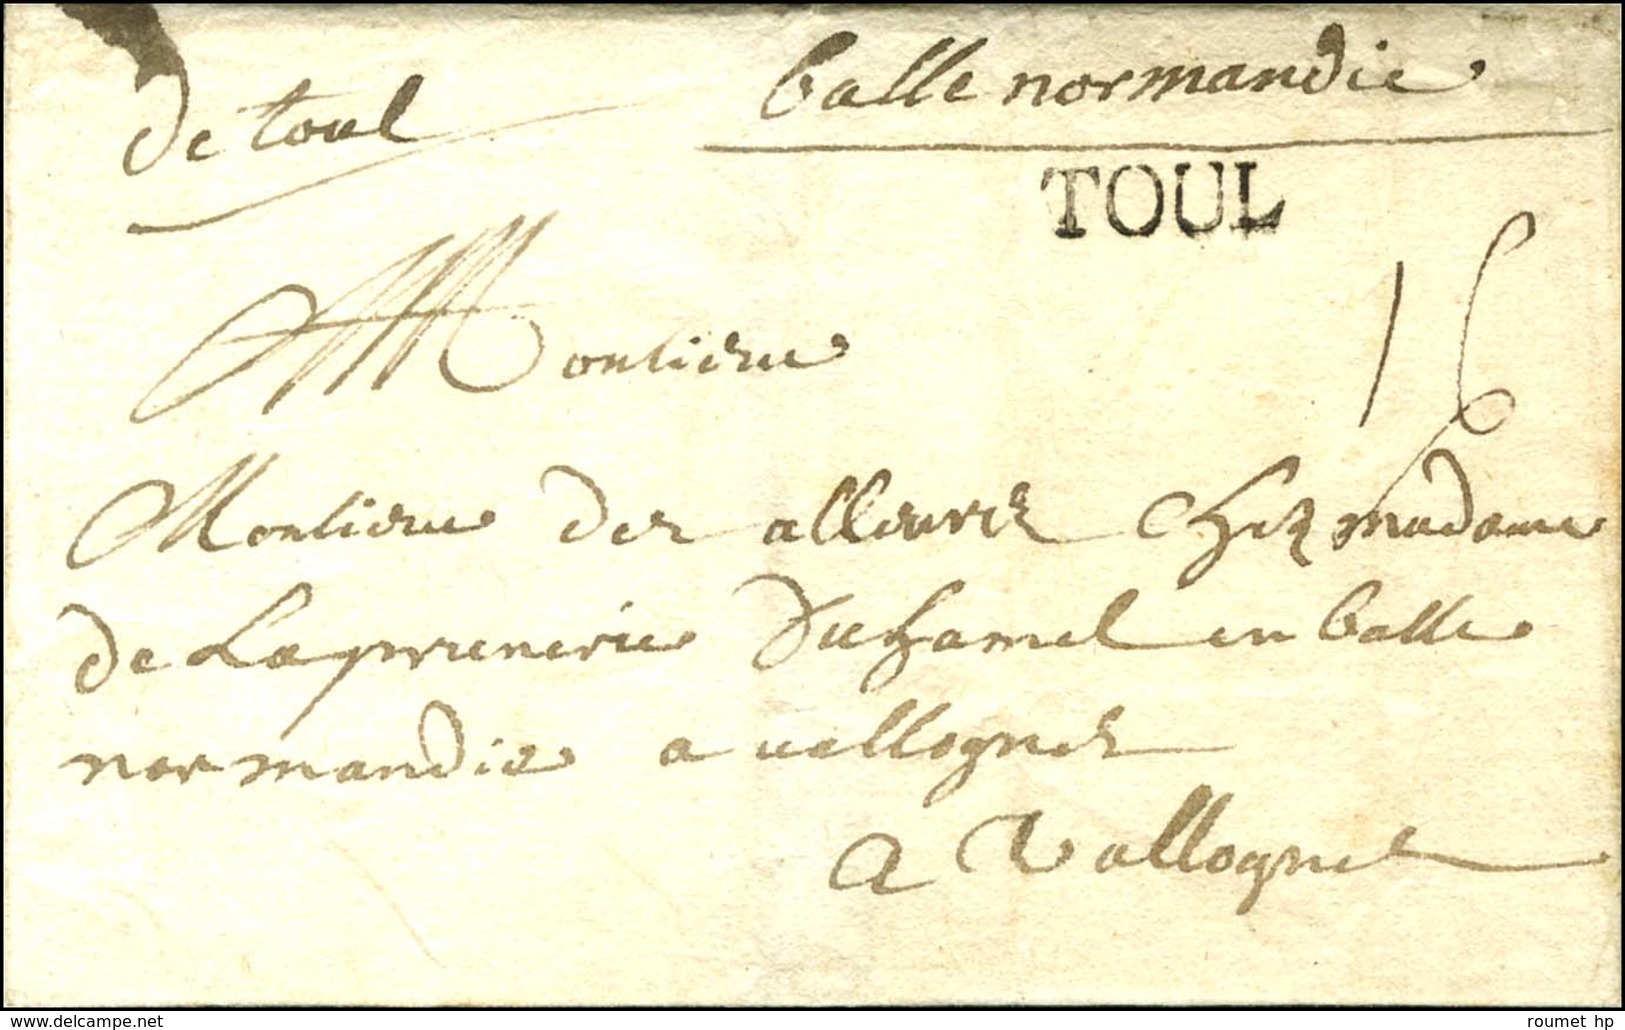 de toul
balle normandie
TOUL
16
Monsieur
Monsieur des alleurez chez madame
de Laprunerie duhamel en balle
normandie a vallognes
A Vallognes
www.delcampe.net
roumet hp